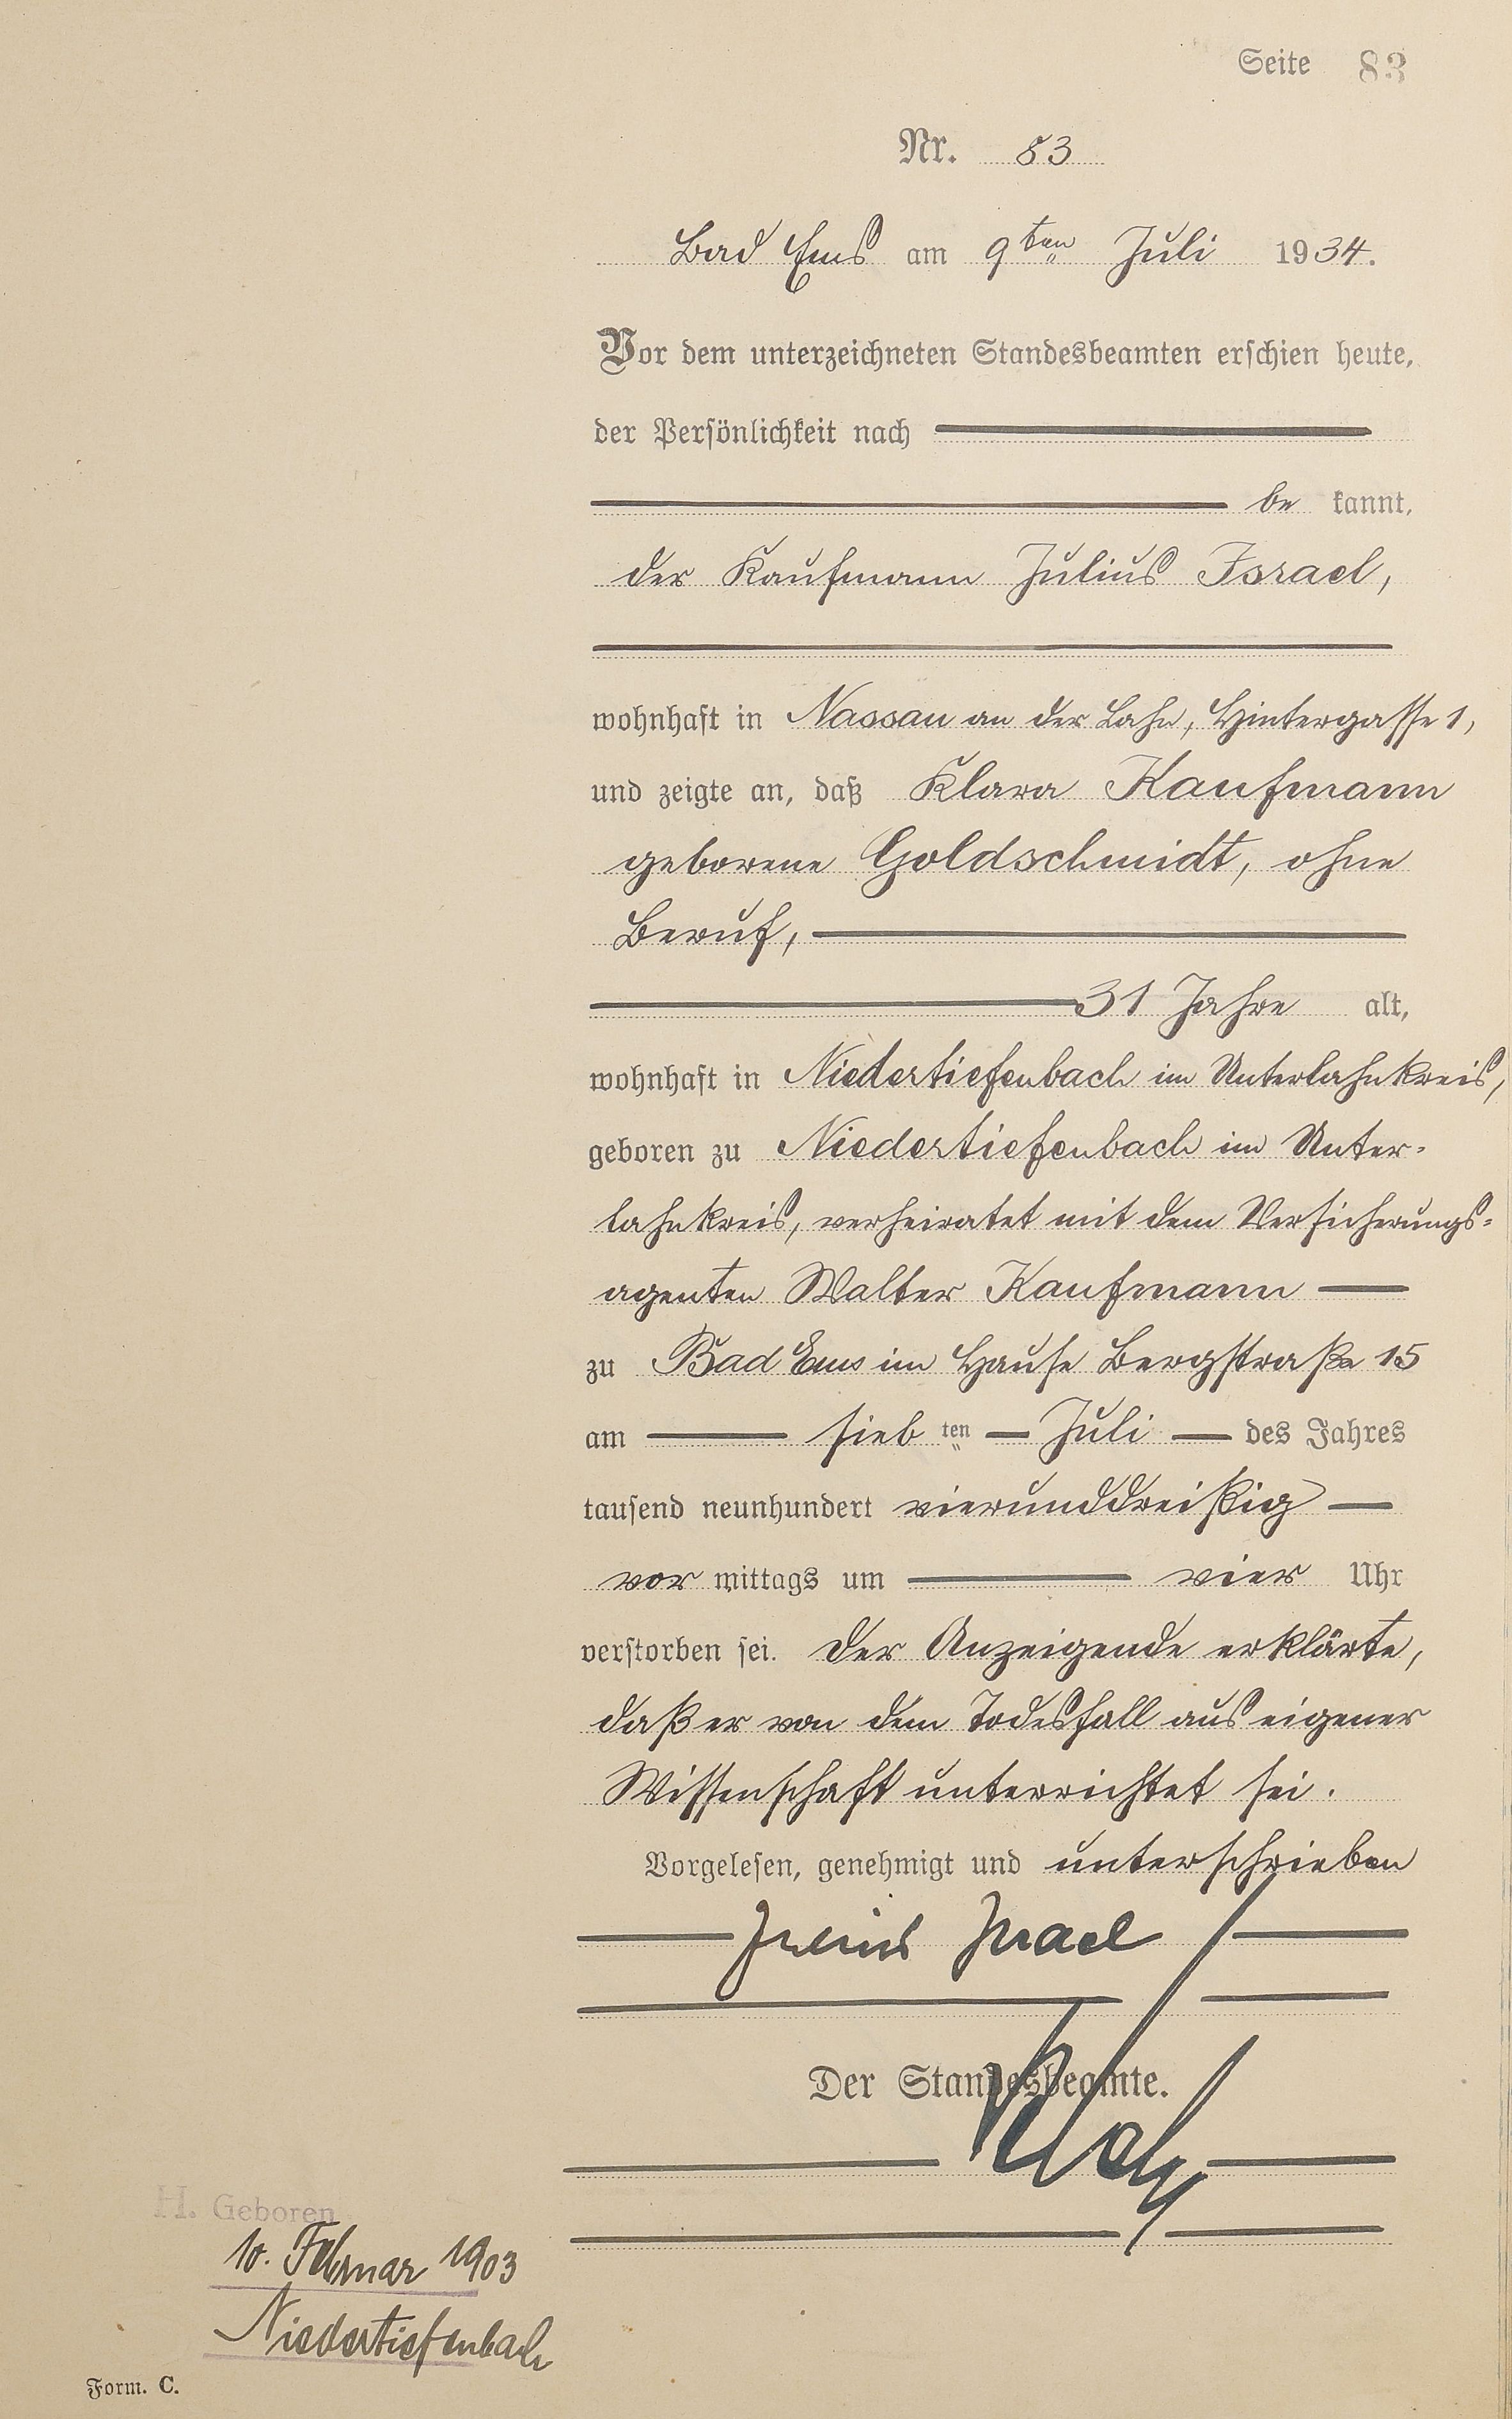 Seite 83
Nr. 83
Bad Ems am 9ten Juli 1934.
Vor dem unterzeichneten Standesbeamten erschien heute,
der Persönlichkeit nach
be kannt,
der Kaufmann Julius Israel,
wohnhaft in Nassau an der Lahn, Hintergasse 1,
und zeigte an, daß Klara Kaufmann
geborene Goldschmidt, ohne
Beruf,
31 Jahre alt,
wohnhaft in Niedertiefenbach im Unterlahnkreis,
geboren zu Niedertiefenbach im Unter-
lahnkreis, verheiratet mit dem Versicherungs-
agenten Walter Kaufmann
zu Bad Ems im Hause Bergstraße 15
am sieb ten Juli des Jahres
tausend neunhundert vierunddreißig
vor mittags um vier Uhr
verstorben sei. Der Anzeigende erklärte,
daß er von dem Todesfall aus eigener
Wissenschaft unterrichtet sei.
Vorgelesen, genehmigt und unterschrieben
Julius Israel
Der Standesbeamte.
H. Geboren
10. Februar 1903
Niedertiefenbach
Form. C.